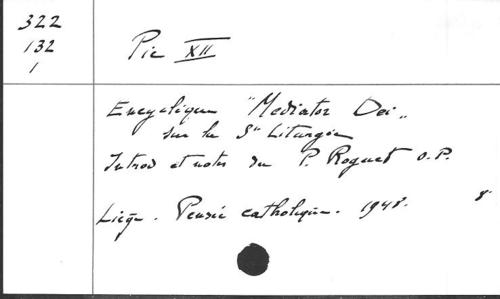 322
132
1
Pie XII
Encyclique "Mediator Dei"
sur la Ste Liturgie
Introd et notes du P. Roguet O.P.
Liège. Pensée catholique. 1948. 8